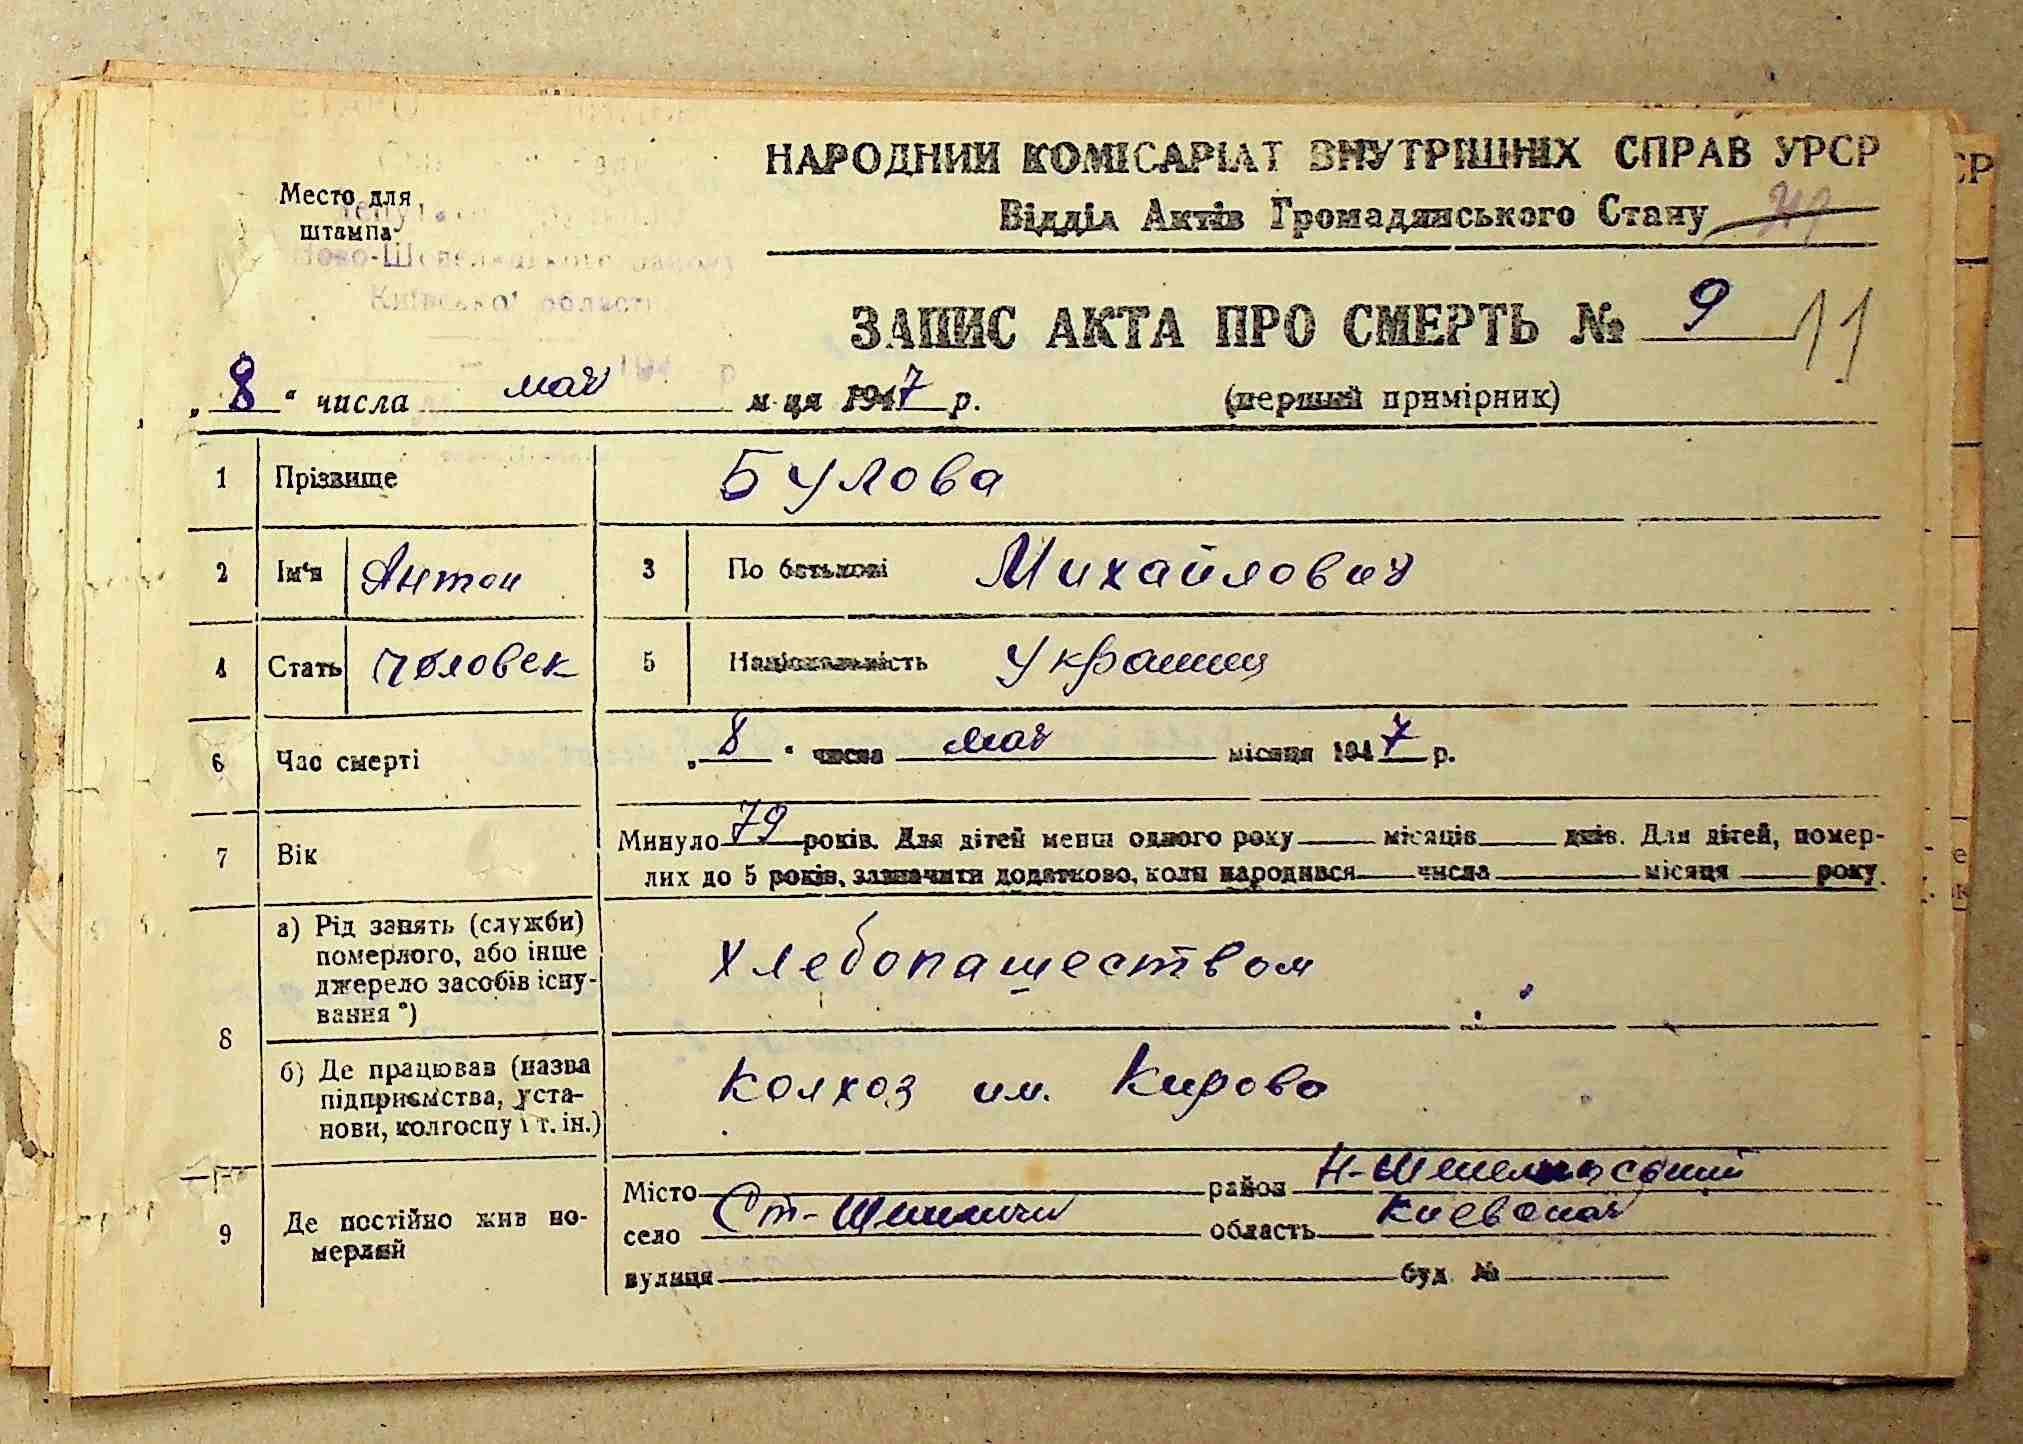 НАРОДНИЙ КОМІСАРІАТ ВНУТРІШНІХ СПРАВ УРСР
Место для
штампа
Відділ Актів Громадянського Стану
Київської області
ЗАПИС АКТА ПРО СМЕРТЬ № 9 11
„8“ числа мая м-ця 1947 р. (перший примірник)
1 Прізвище Булова
2 Ім'я Антон 3 По батькові Михайлович
4 Стать Чоловек 5 Національність Украинец
6 Час смерті „8“ числа мая місяця 1947 р.
7 Вік Минуло 79 років. Для дітей менш одного року місяців днів. Для дітей, помер-
лих до 5 років, зазначити додатково, коли народився числа місяця року.
8 а) Рід занять (служби)
померлого, або інше
джерело засобів існу-
вання*)
Хлебопашеством
б) Де працював (назва
підприємства, уста-
нови, колгоспу і т. ін.)
Колхоз им. Кирова
9 Де постійно жив по-
мерлий
Місто район Н-Шепеличский
село Ст-Шепеличи область Киевская
вулиця буд. №